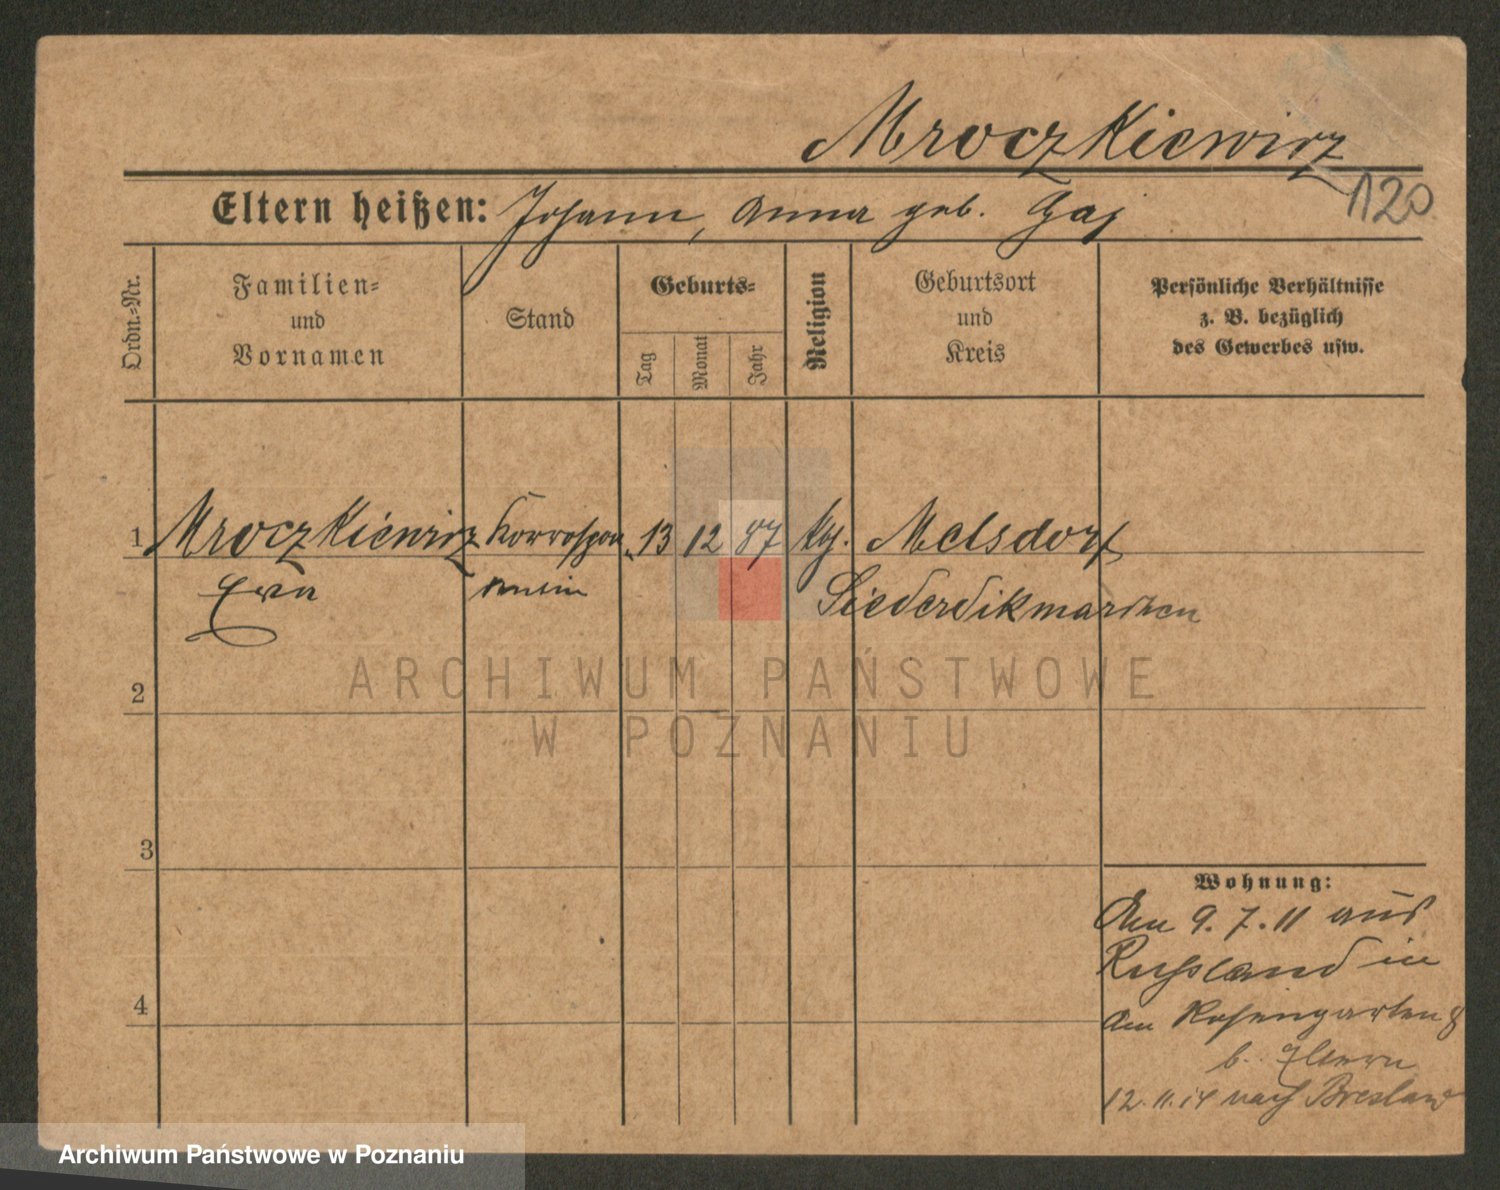 Mroczkiewicz
120
Eltern heißen: Johann, Anna geb. Gaj
Ordn.-Nr.
Familien-
und
Vornamen
Stand
Geburts-
Tag
Monat
Jahr
Religion
Geburtsort
und
Kreis
Persönliche Verhältnisse
z. B. bezüglich
des Gewerbes usw.
1 Mroczkiewicz Korrespon- 13 12 87 Melsdorf
Eva dentin
2
3
4
Wohnung:
Am 9.7.11 aus
Russland in
Am Rosengarten 8
b. Eltern
12.11.14 nach Breslau
ARCHIWUM PAŃSTWOWE
W POZNANIU
Archiwum Państwowe w Poznaniu